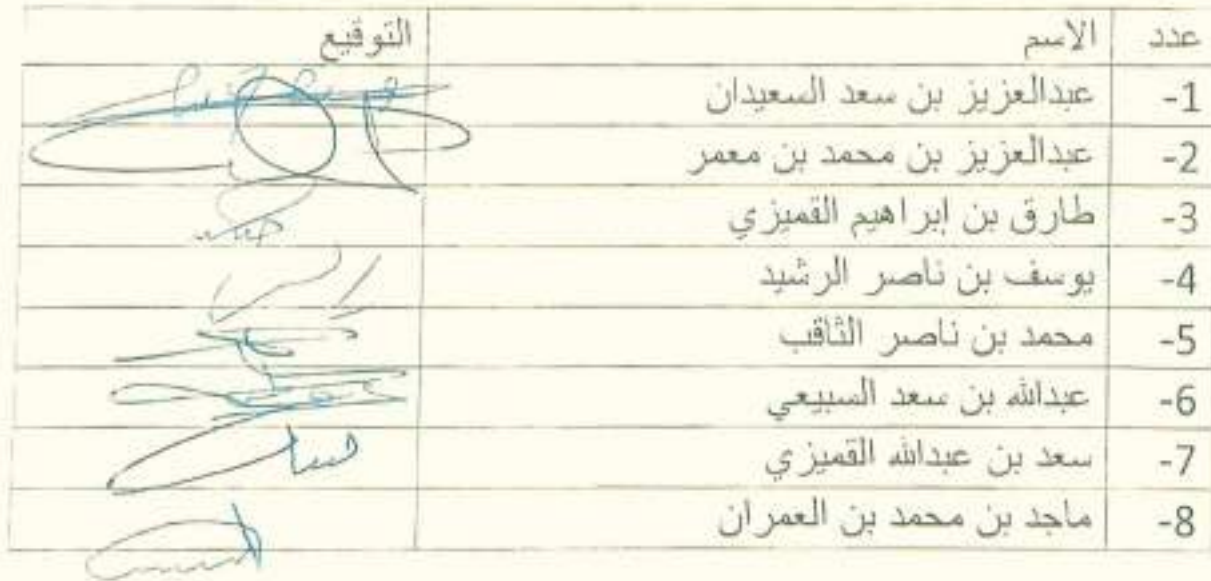 عدد الاسم التوقيع
1- عبدالعزيز بن سعد السعيدان
2- عبدالعزيز بن محمد بن معمر
3- طارق بن إبراهيم القميزي
4- يوسف بن ناصر الرشيد
5- محمد بن ناصر الثاقب
6- عبدالله بن سعد السبيعي
7- سعد بن عبدالله القميزي
8- ماجد بن محمد بن العمران